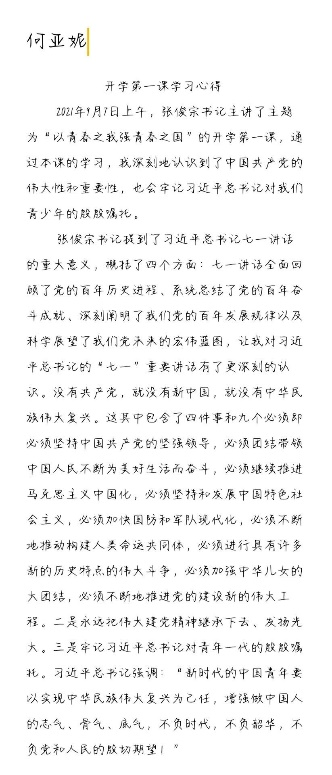 何亚妮
开学第一课学习心得
2021年9月7日上午，张俊宗书记主讲了主题
为“以青春之我强青春之国”的开学第一课，通
过本课的学习，我深刻地认识到了中国共产党的
伟大性和重要性，也会牢记习近平总书记对我们
青少年的殷殷嘱托。
张俊宗书记提到了习近平总书记七一讲话
的重大意义，概括了四个方面：七一讲话全面回
顾了党的百年历史进程、系统总结了党的百年奋
斗成就、深刻阐明了我们党的百年发展规律以及
科学展望了我们党未来的宏伟蓝图，让我对习近
平总书记的“七一”重要讲话有了更深刻的认
识。没有共产党，就没有新中国，就没有中华民
族伟大复兴。这其中包含了四件事和九个必须即
必须坚持中国共产党的坚强领导，必须团结带领
中国人民不断为美好生活而奋斗，必须继续推进
马克思主义中国化，必须坚持和发展中国特色社
会主义，必须加快国防和军队现代化，必须不断
地推动构建人类命运共同体，必须进行具有许多
新的历史特点的伟大斗争，必须加强中华儿女的
大团结，必须不断地推进党的建设新的伟大工
程。二是永远把伟大建党精神继承下去、发扬光
大。三是牢记习近平总书记对青年一代的殷殷嘱
托。习近平总书记强调：“新时代的中国青年要
以实现中华民族伟大复兴为己任，增强做中国人
的志气、骨气、底气，不负时代，不负韶华，不
负党和人民的殷切期望！”